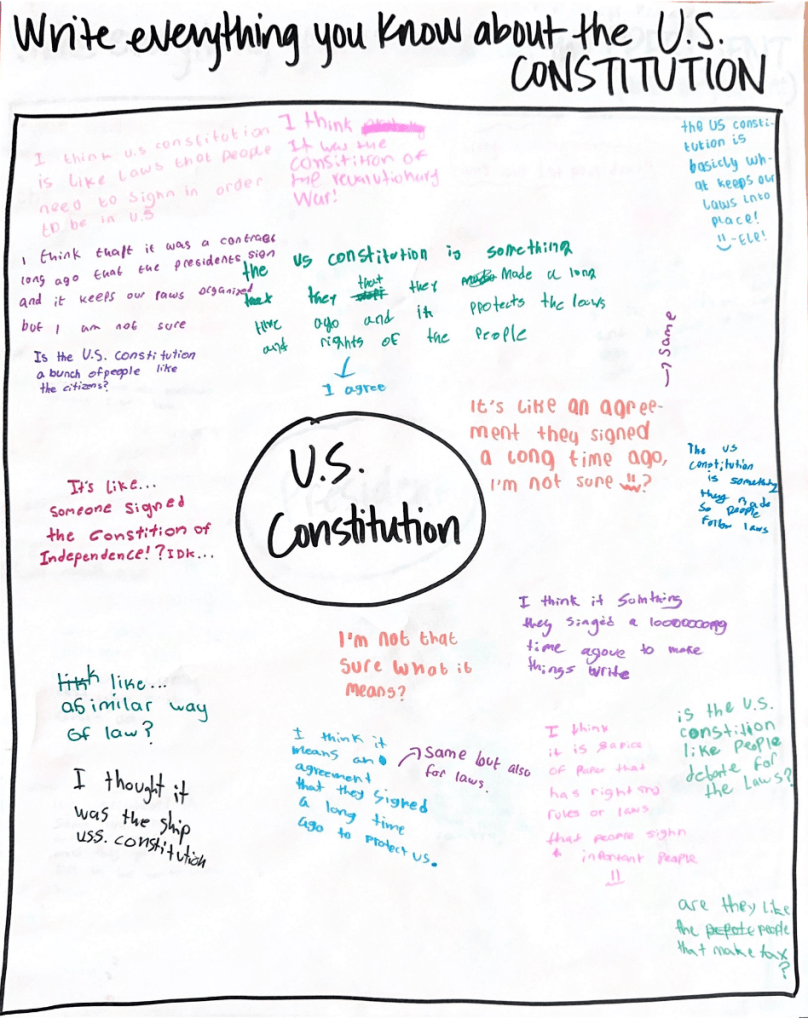 Write everything you know about the U.S.
CONSTITUTION
I think u.s constitution
is like laws that people
need to sighn in order
to be in U.S
I think
It was the
Consitition of
the revalutionary
War!
the US consti-
tution is
basicly wh-
at keeps our
laws into
place!
-Ele!
I think thaft it was a contract
long ago that the presidents sign
and it keeps our laws organized
but I am not sure
the us constitution is something
that they that they made Made a long
time ago and it protects the laws
and rights of the People
I agree
Same
Is the U.S. Constitution
a bunch of people like
the citizens?
It's like an agree-
ment they signed
a long time ago,
I'm not sure ?
U.S.
Constitution
The US
constitution
is something
they made
so people
follow laws
It's like...
someone signed
the Constition of
Independence!? IDK...
I think it somthing
they singed a 10000000ng
time agove to make
things write
I'm not that
sure what it
means?
like...
a similar way
of law?
I thought it
was the ship
uss. constitution
I think it
means an
agreement
that they signed
a long time
ago to protect us.
Same but also
for laws.
I think
it is
of Paper that
has right and
rules or laws
that people sighn
+ inportant people
is the U.S.
constition
like people
debate for
the Laws?
are they like
the people
that make tax
?